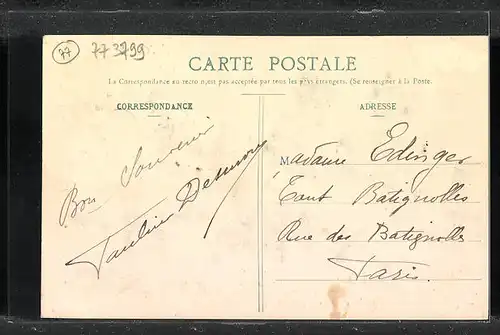 77 77 3299
CARTE POSTALE
La Correspondance au recto n'est pas acceptée par tous les pays étrangers. (Se renseigner à la Poste.
CORRESPONDANCE
ADRESSE
Bon Souvenir
Pauline
Madame Edinger
Tout Batignolles
Rue des Batignolles
Paris.